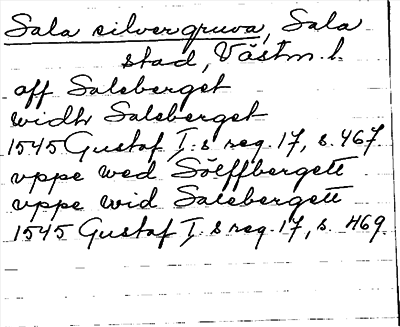 Sala silvergruva, Sala
stad, Västm. l.
aff Salsberget
widh Salsberget
1545 Gustaf I:s reg. 17, s. 467.
vppe wed Sölffbergett
vppe wid Salsbergett
1545 Gustaf I:s reg. 17, s. 469